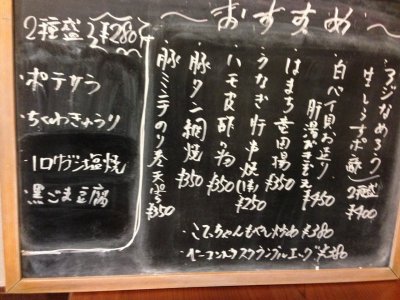 ～おすすめ～
アジなめろう
生しらすポン酢
2種盛
¥400
白バイ貝お造り
肝湯がきそえ
¥450
はまち竜田揚
¥350
うなぎ肝串焼
(1本)
¥250
ハモ皮酢の物
¥350
豚タン網焼
¥350
豚ミミ のり巻天ぷら
¥350
こてっちゃんもやし炒め ¥380
ベーコンスクランブルエッグ ¥380
2種盛 ¥280
・ポテサラ
・ちくわきゅうり
・黒ごま豆腐